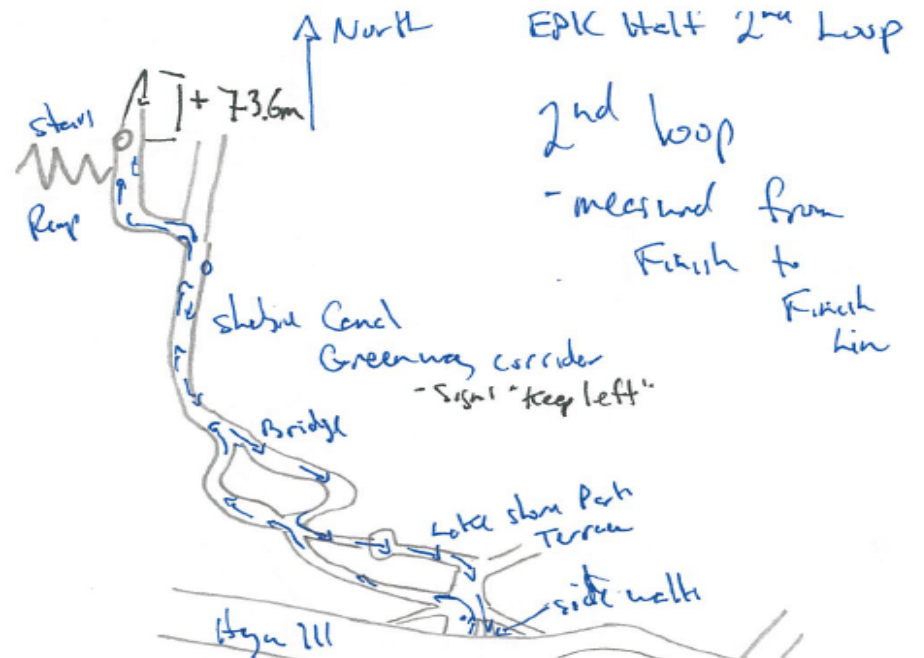 North
EPIC Half 2nd Loop
+ 73.6m
Start
2nd loop
- measured from
Finish to
Finish
Line
Ramp
Canal
Greenway corridor
- Signs "Keep left"
Bridge
Lake shore Park
Terrace
side walk
Hwy 111